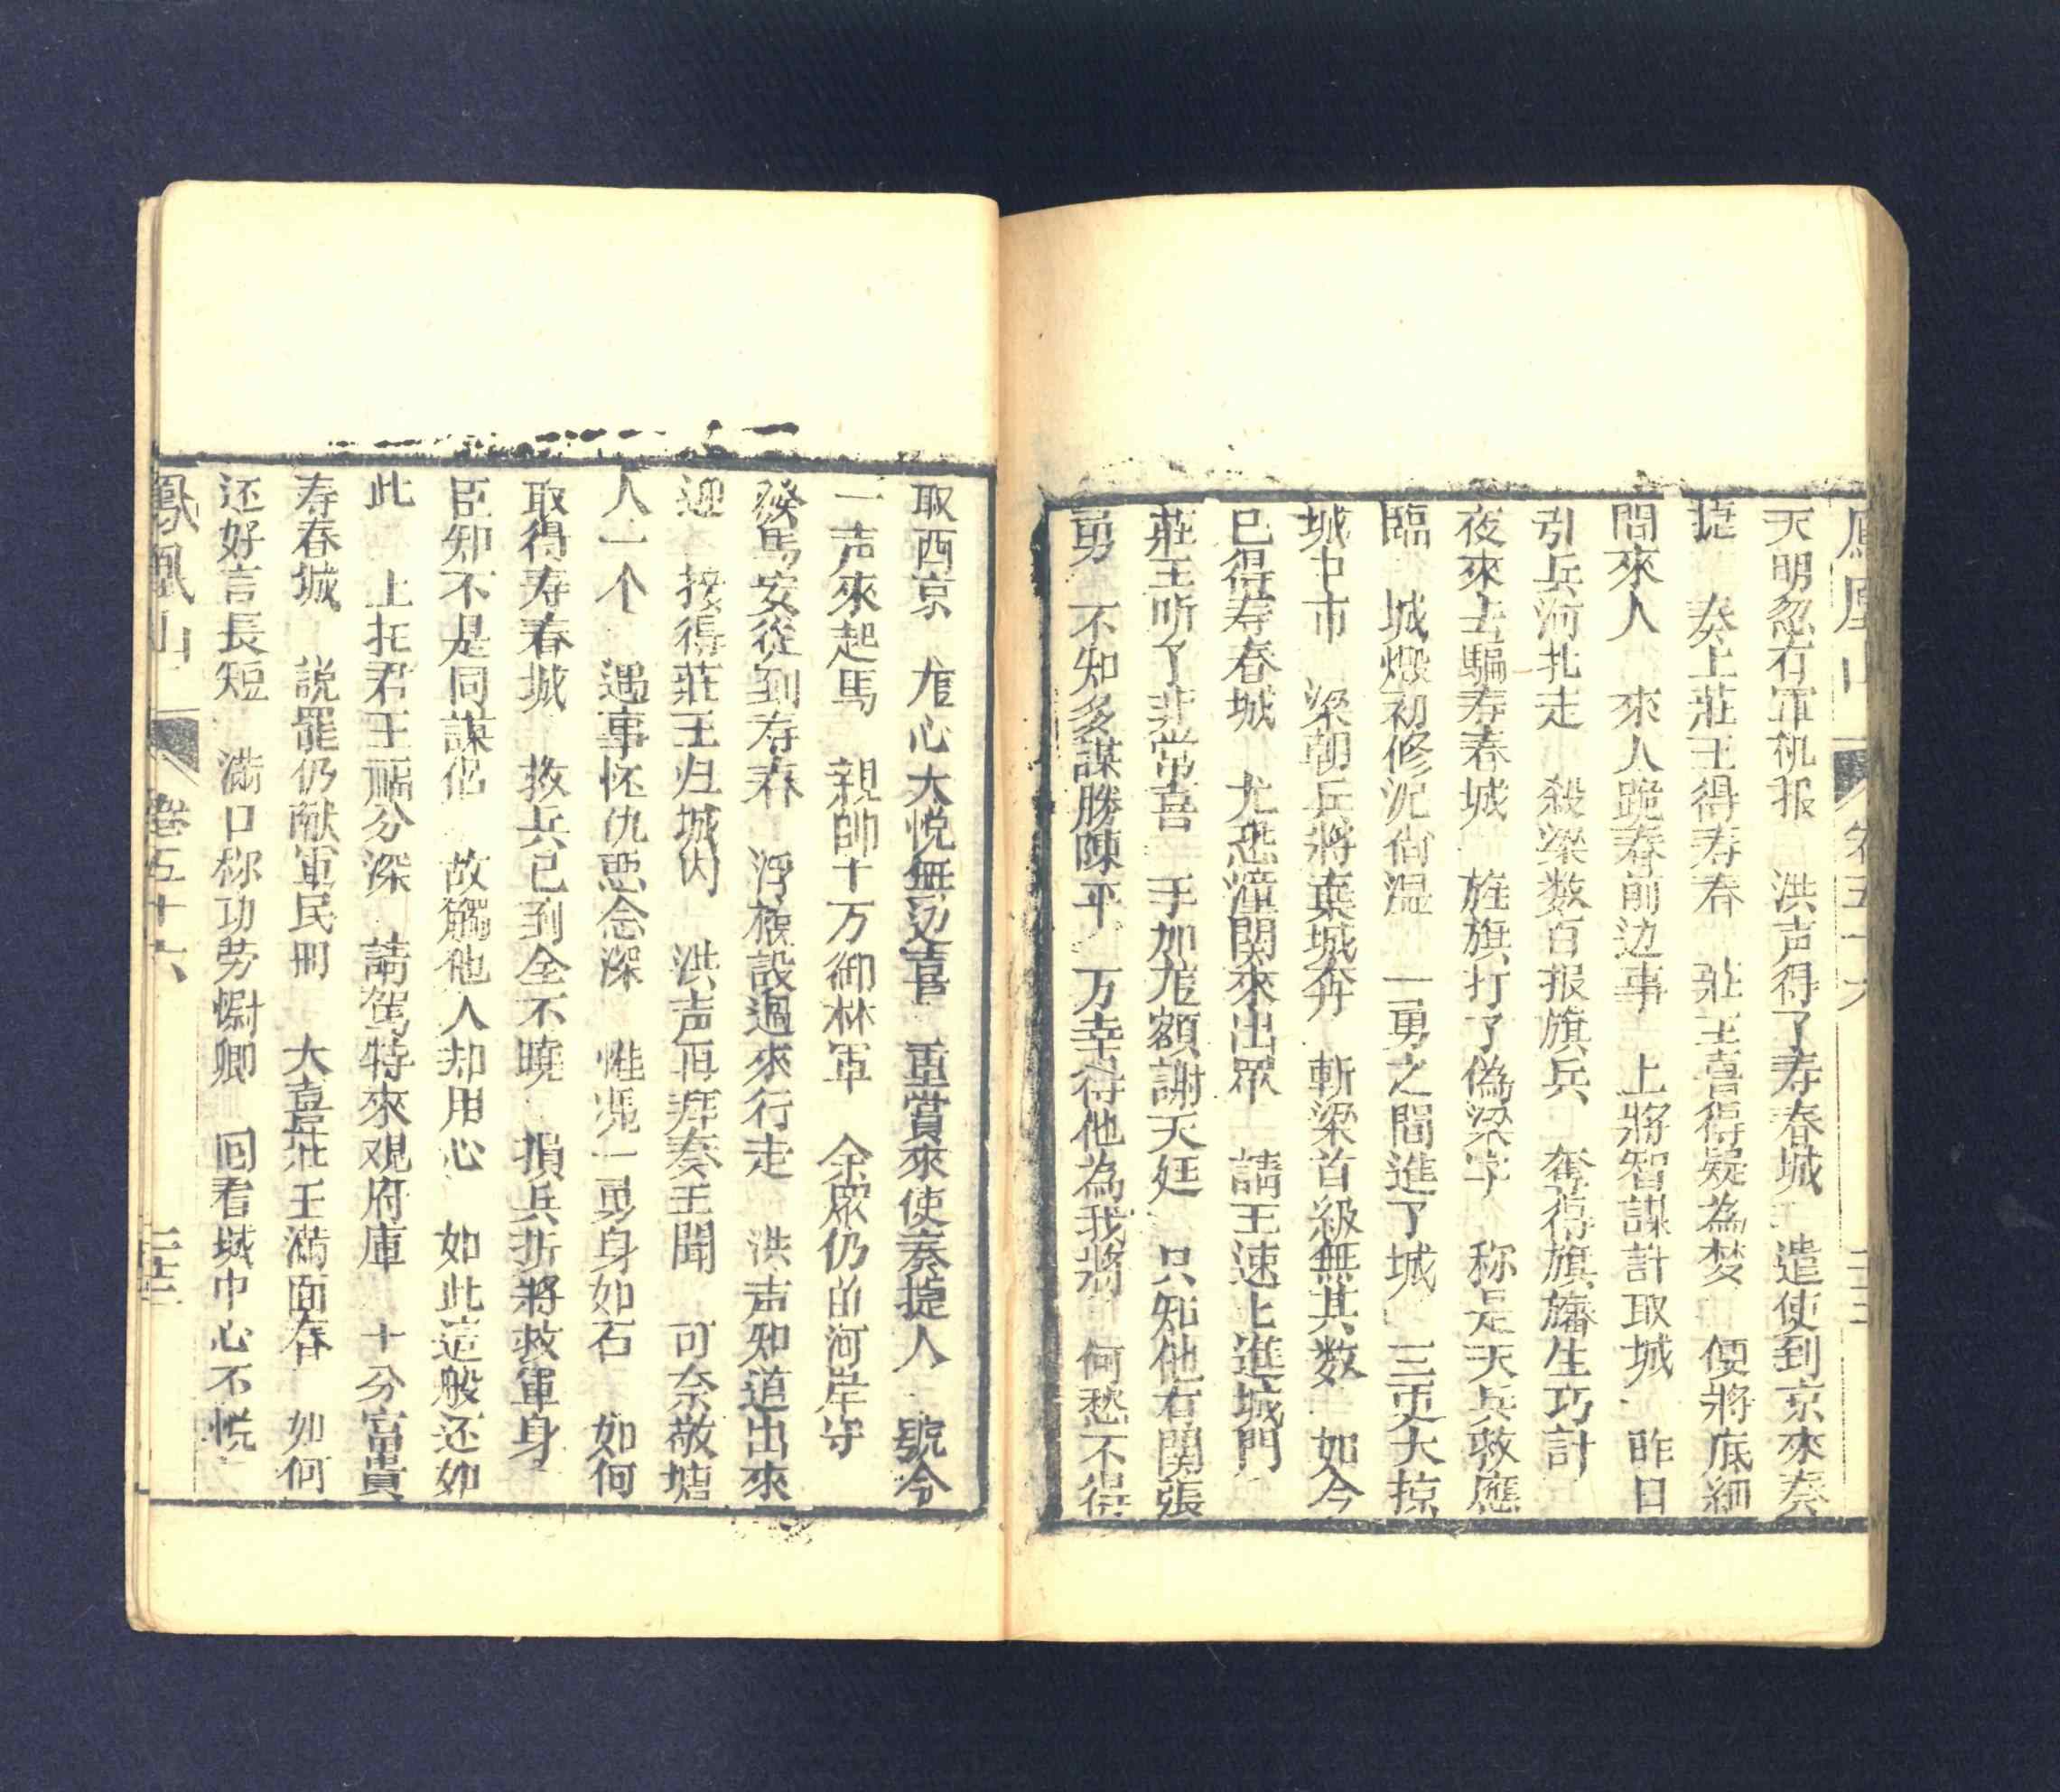 鳳凰山 卷五十六 二十三
天明忽有軍机报 洪声得了寿春城 遣使到京來奏
捷 奏上莊王得寿春 莊王喜得疑為梦 便將底細
問來人 來人跪奏前边事 上將智謀計取城 昨日
引兵河扎走 殺梁数百报旗兵 奪得旗旛生巧計
夜來去騙寿春城 旌旗打了偽梁字 称是天兵救應
臨 城燬初修泥尙湿 一勇之間進了城 三更大掠
城中市 梁朝兵將棄城奔 斬梁首級無其数 如今
已得寿春城 尤恐潼關來出眾 請王速上進城門
莊王听了非常喜 手加龙額謝天廷 只知他有関張
勇 不知多謀勝陳平 万幸得他為我將 何愁不得
取西京 龙心大悦無边喜 重賞來使奏捷人 號令
一声來起馬 親帥十万御林軍 余眾仍的河岸守
發馬安從到寿春 浮橋設過來行走 洪声知道出來
迎 接得莊王归城内 洪声再拜奏王聞 可奈敬塘
人一个 遇事怀仇悪念深 惟凴一勇身如石 如何
取得寿春城 救兵已到全不曉 損兵折將救軍身
臣知不是同謀侣 故觸他人却用心 如此這般还如
此 上托君王福分深 請駕特來观府庫 十分富貴
寿春城 説罷仍献軍民册 大喜莊王滿面春 如何
还好言長短 滿口称功劳慰卿 回看城中心不悦
鳳凰山 卷五十六 二十三